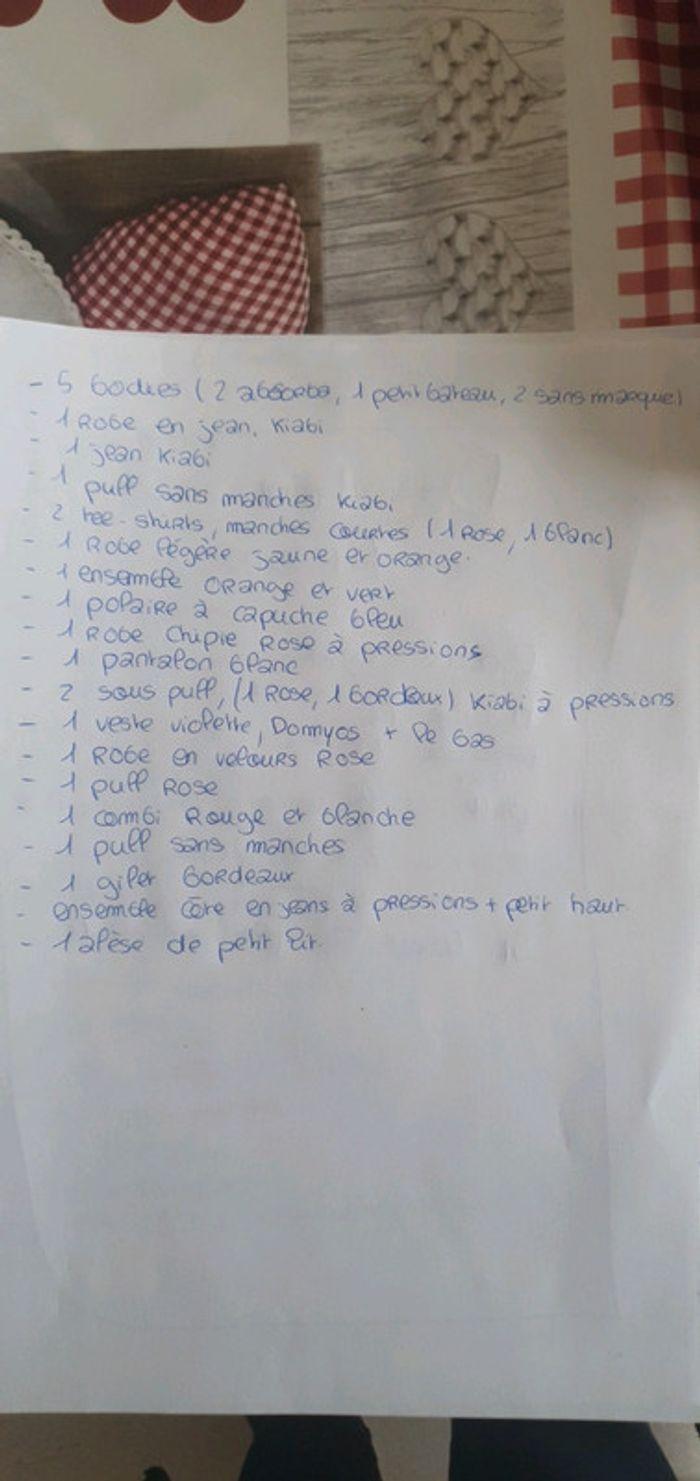 - 5 bodies (2 absorba, 1 petit bateau, 2 sans marque)
- 1 Robe en jean. Kiabi
- 1 jean Kiabi
- 1 pull sans manches Kiabi
- 2 tee-shirts, manches courtes (1 Rose, 1 blanc)
- 1 Robe légère jaune et orange.
- 1 ensemble orange et vert
- 1 polaire à capuche bleu
- 1 Robe Chipie Rose à pressions
- 1 pantalon blanc
- 2 sous pull, (1 Rose, 1 bordeaux) Kiabi à pressions
- 1 veste violette, Domyos + le bas
- 1 Robe en velours Rose
- 1 pull Rose
- 1 combi Rouge et blanche
- 1 pull sans manches
- 1 gilet bordeaux
- ensemble côte en jeans à pressions + petit haut
- 1 alèse de petit lit.